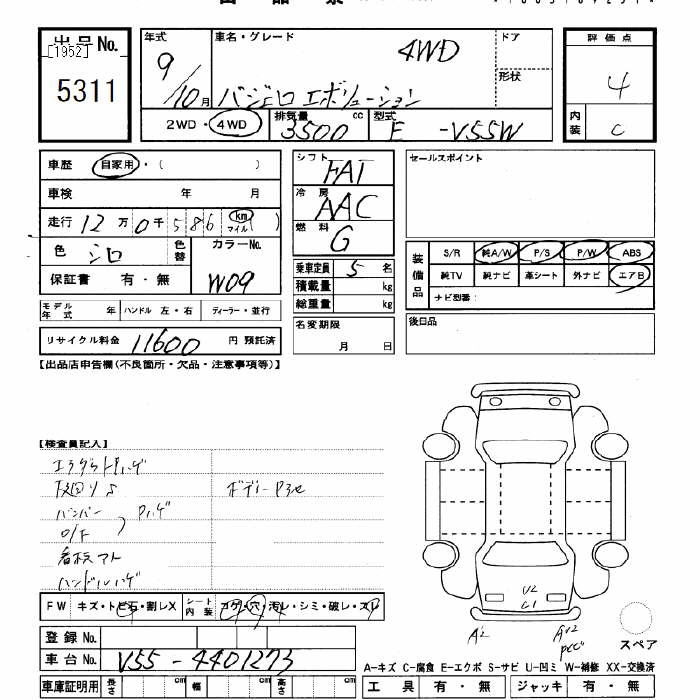 出品票
出品No.
[1952]
5311
年式
9/10月
車名・グレード
4WD
パジェロ エボリューション
ドア
形状
評価点
4
内装
C
2WD・4WD
排気量
3500 cc
型式
E -V55W
車歴
自家用・( )
車検
年 月
走行
12万0千586
km
マイル
( )
色
シロ
色替
カラーNo.
W09
保証書 有・無
モデル年式
年
ハンドル 左・右
ディーラー・並行
リサイクル料金 11600 円 預託済
シフト
FAT
冷房
AAC
燃料
G
乗車定員 5 名
積載量 kg
総重量 kg
名変期限
月 日
セールスポイント
装備品
S/R
純A/W
P/S
P/W
ABS
純TV
純ナビ
革シート
外ナビ
エアB
ナビ型番:
後日品
【出品店申告欄(不良箇所・欠品・注意事項等)】
【検査員記入】
バンパー
Pハゲ
O/F
ハンドルハゲ
FW
キズ・トビ石・割レX
シート内装
コゲ・穴・汚レ・シミ・破レ・スレ
登録No.
車台No. V55-4401273
車庫証明用
長さ
cm
幅
cm
高さ
cm
U2
C1
A2
スペア
A-キズ C-腐食 E-エクボ S-サビ U-凹ミ W-補修 XX-交換済
工具 有・無
ジャッキ 有・無